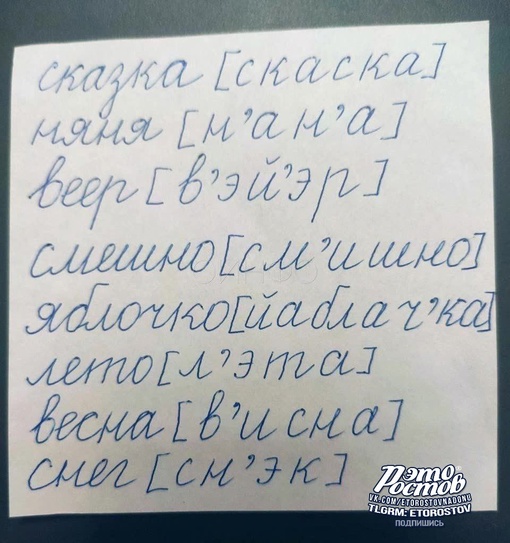 сказка [скаска]
няня [н'ан'а]
веер [в'эй'эр]
смешно [см'ишно]
яблочко [йаблач'ка]
лето [л'эта]
весна [в'исна]
снег [сн'эк]
Это
Ростов
VK.COM/ETOROSTOVNADONU
TLGRM: ETOROSTOV
подпишись